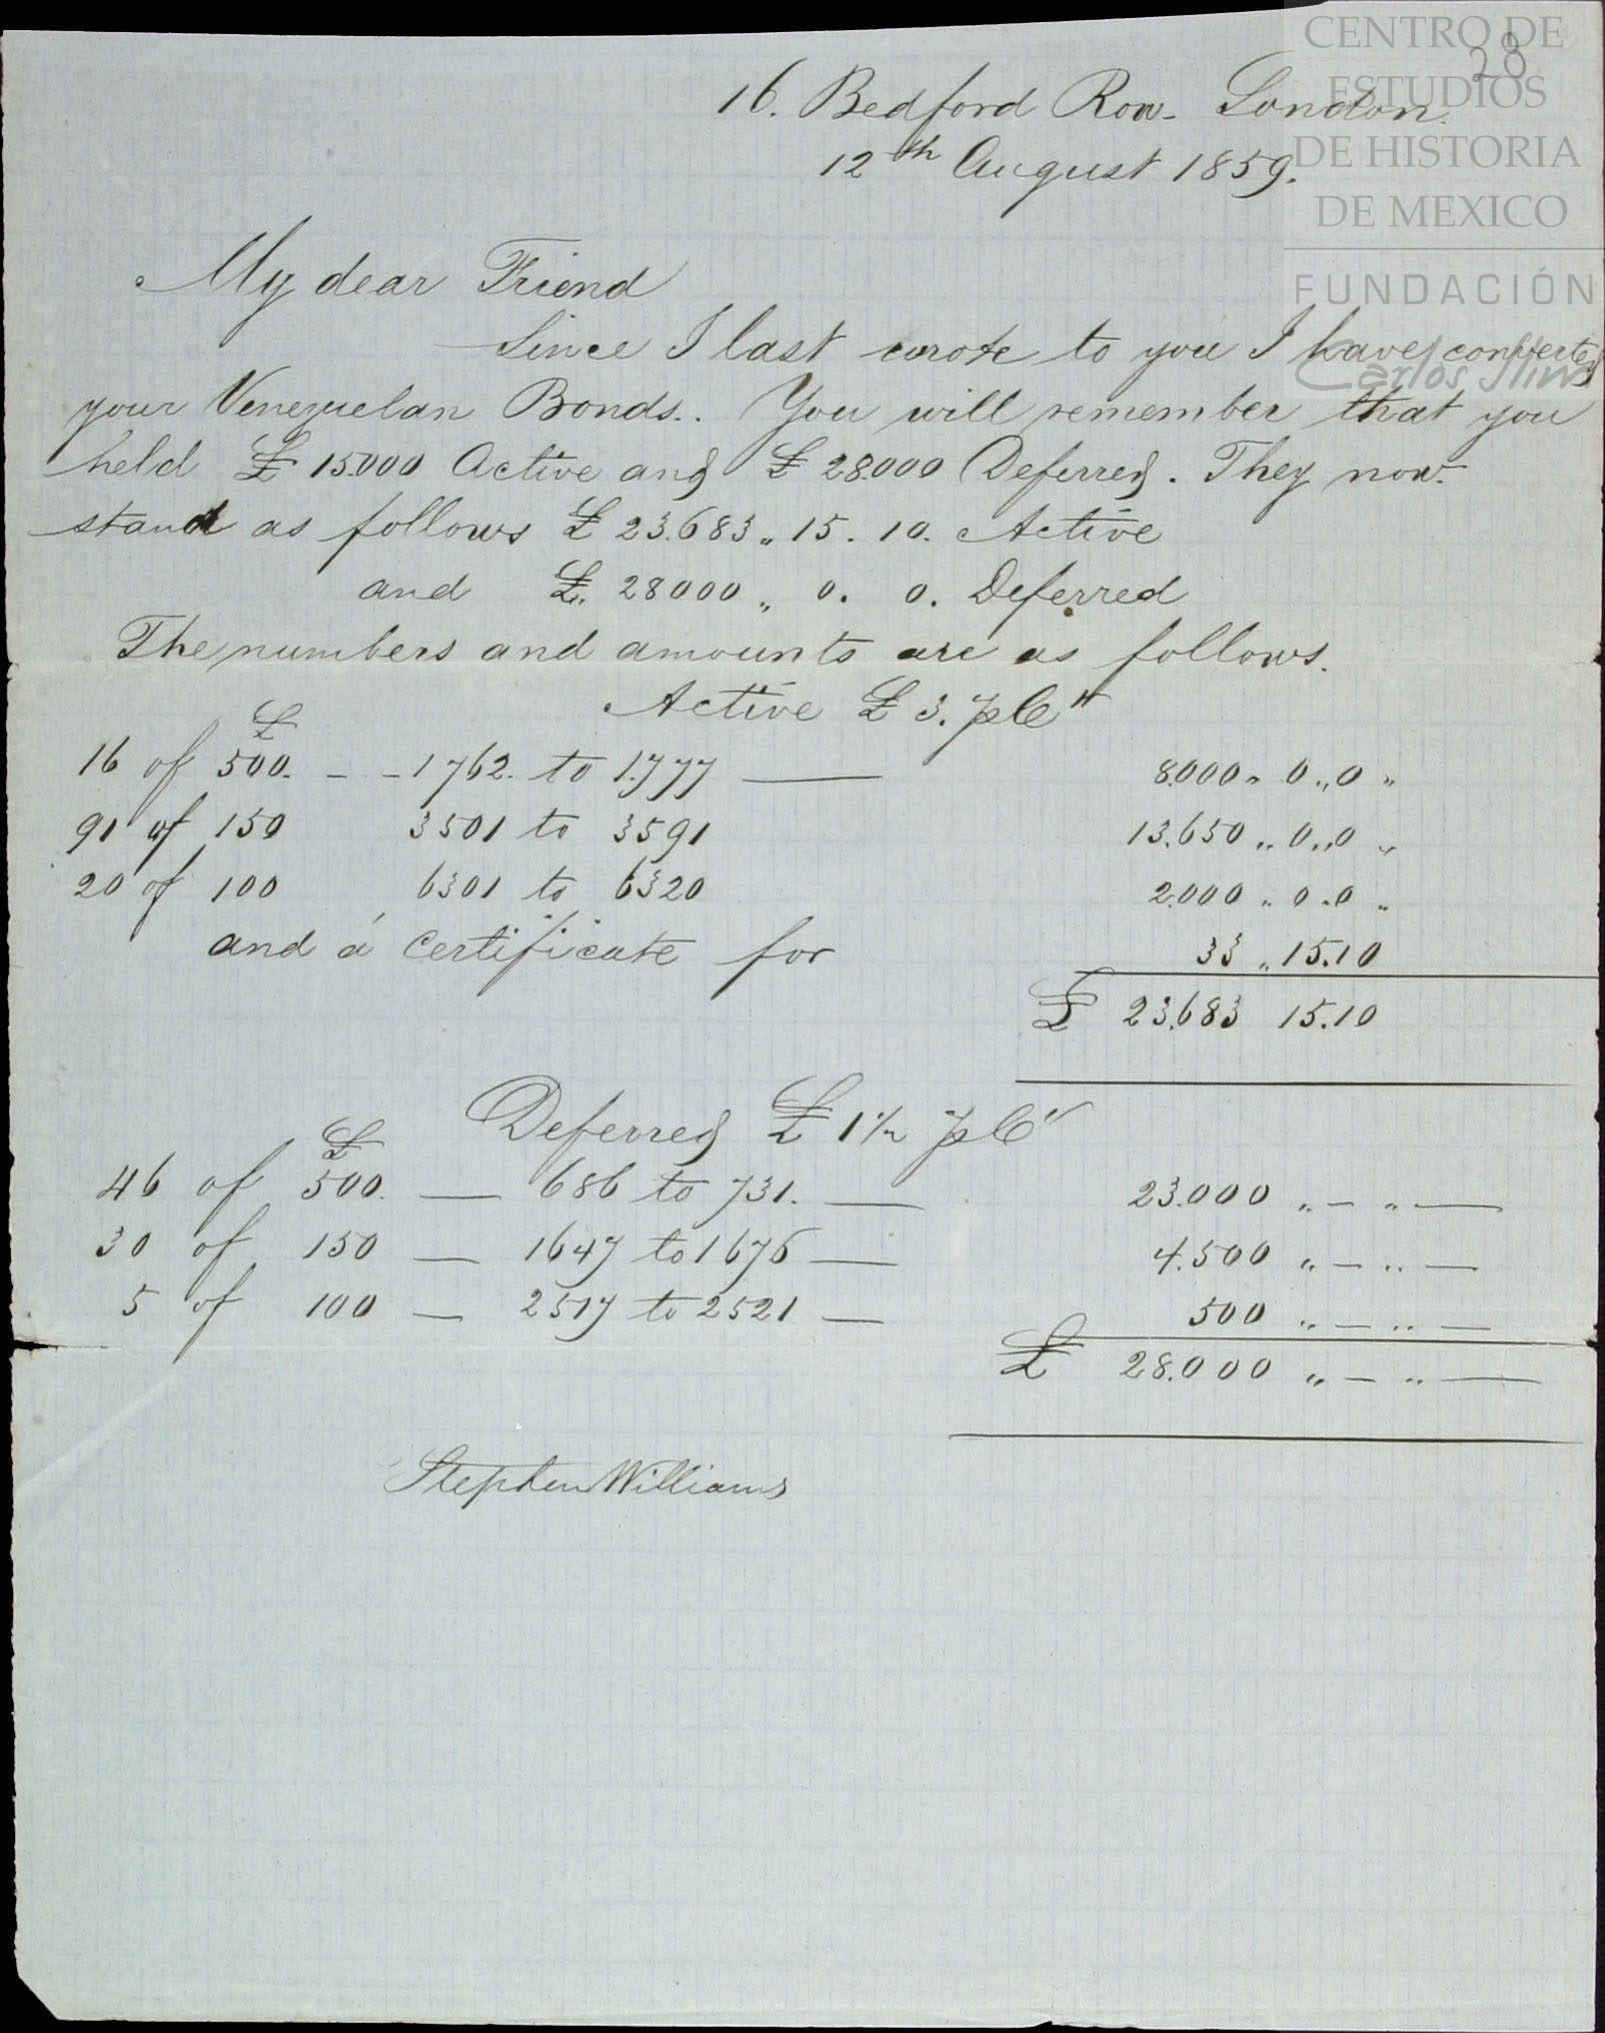 CENTRO DE
ESTUDIOS
DE HISTORIA
DE MEXICO
FUNDACIÓN
Carlos Slim
28
16. Bedford Row. London.
12th August 1859.
My dear Friend
Since I last wrote to you I have converted
your Venezuelan Bonds.. You will remember that you
held £ 15.000 Active and £ 28.000 Deferred. They now
stand as follows £ 23.683 „ 15 . 10. Active
and £. 28000 „ 0. 0. Deferred
The numbers and amounts are as follows.
Active £ 3. p Ct
£
16 of 500. - - 1762. to 1.777 — 8.000 „ 0 „ 0 „
91 of 150 3501 to 3591 13.650 „ 0 „ 0 „
20 of 100 6301 to 6320 2.000 „ 0 „ 0 „
and a Certificate for 33 „ 15.10
£ 23.683 15.10
Deferred £ 1½ p Ct
£
46 of 500. — 686 to 731. — 23.000 „ — „ —
30 of 150 — 1647 to 1676 — 4.500 „ — „ —
5 of 100 — 2517 to 2521 — 500 „ — „ —
£ 28.000 „ — „ —
Stephen Williams